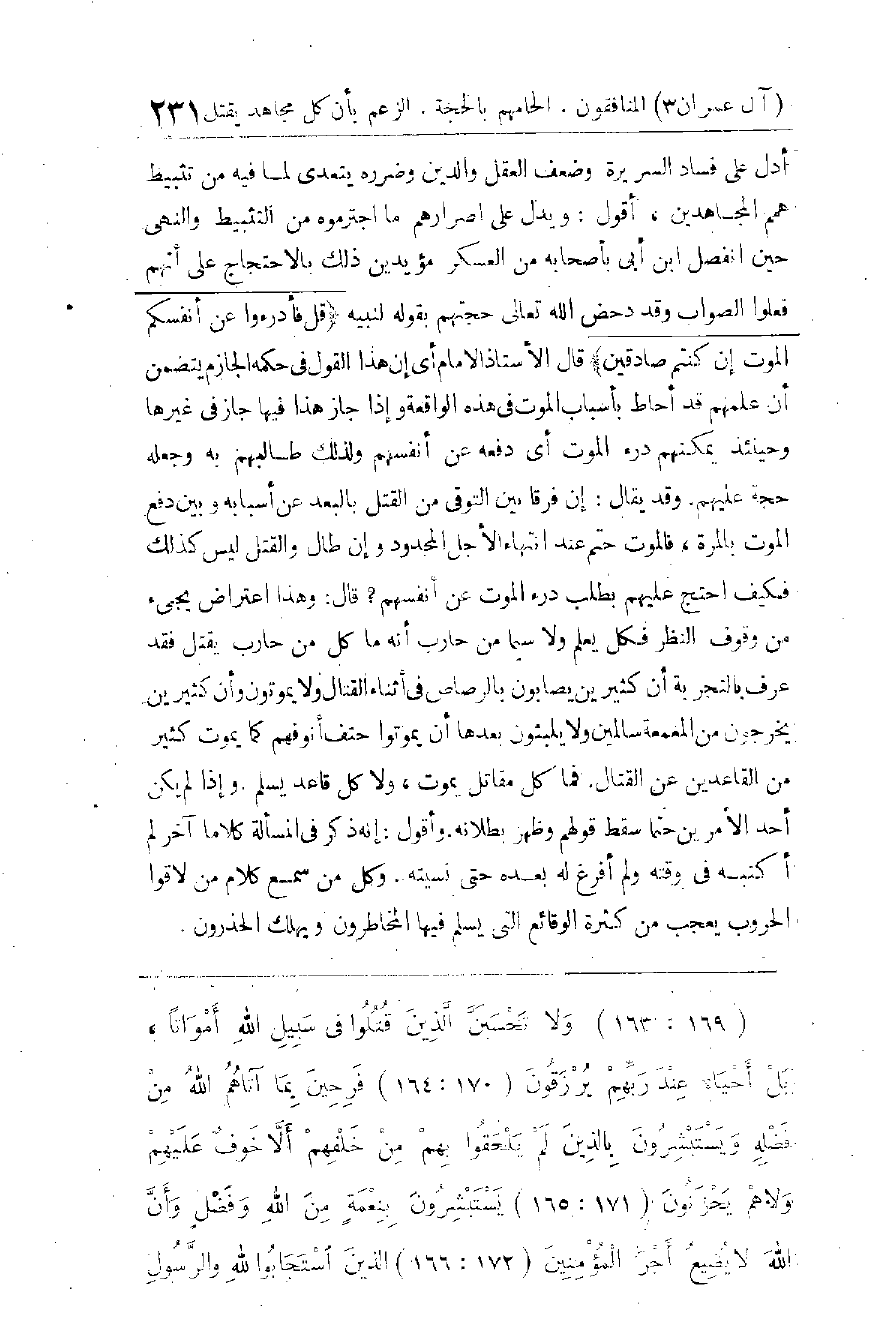 (آل عمران٣) المنافقون . الحامهم بالحجة . الزعم بأن كل مجاهد يقتل ٢٣١
أدل على فساد السريرة وضعف العقل والدين وضرره يتعدى لما فيه من تثبيط
همم المجاهدين ، أقول : ويدل على اصرارهم ما اجترموه من التثبيط والنهى
حين انفصل ابن أبى بأصحابه من العسكر مؤيدين ذلك بالاحتجاج على أنهم
فعلوا الصواب وقد دحض الله تعالى حجتهم بقوله لنبيه ﴿قل فأدرءوا عن أنفسكم
الموت إن كنتم صادقين﴾ قال الأستاذ الامام أى إن هذا القول فى حكمه الجازم يتضمن
أن علمهم قد أحاط بأسباب الموت فى هذه الواقعة وإذا جاز هذا فيها جاز فى غيرها
وحينئذ يمكنهم درء الموت أى دفعه عن أنفسهم ولذلك طالبهم به وجعله
حجة عليهم. وقد يقال : إن فرقا بين التوقى من القتل بالبعد عن أسبابه وبين دفع
الموت بالمرة ، فالموت حتم عند انتهاء الأجل المحدود وإن طال والقتل ليس كذلك
فكيف احتج عليهم بطلب درء الموت عن أنفسهم ? قال: وهذا اعتراض يجىء
من وقوف النظر فكل يعلم ولا سيما من حارب أنه ما كل من حارب يقتل فقد
عرف بالتجربة أن كثيرين يصابون بالرصاص فى أثناء القتال ولا يموتون وأن كثيرين
يخرجون من المعمعة سالمين ولا يلبثون بعدها أن يموتوا حتف أنوفهم كما يموت كثير
من القاعدين عن القتال. فما كل مقاتل يموت ، ولا كل قاعد يسلم . وإذا لم يكن
أحد الأمرين حتما سقط قولهم وظهر بطلانه. وأقول : إنه ذكر فى المسألة كلاما آخر لم
أكتبه فى وقته ولم أفرغ له بعده حتى نسيته . وكل من سمع كلام من لاقوا
الحروب يعجب من كثرة الوقائع التى يسلم فيها المخاطرون ويهلك الحذرون .
( ١٦٩ : ١٦٣ ) وَلا تَحْسَبَنَّ الَّذِينَ قُتِلُوا فى سَبِيلِ اللهِ أَمْوَاتاً ،
بَلْ أَحْيَاء عِنْدَ رَبِّهِمْ يُرْزَقُونَ ( ١٧٠ : ١٦٤ ) فَرِحِينَ بِمَا آتَاهُمُ اللهُ مِنْ
فَضْلِهِ وَيَسْتَبْشِرُونَ بِالذِينَ لَمْ يَلْحَقُوا بِهِمْ مِنْ خَلْفِهِمْ أَلَّا خَوفٌ عَلَيْهِمْ
وَلاهُمْ يَحْزَنُونَ ( ١٧١ : ١٦٥ ) يَسْتَبْشِرُونَ بِنِعْمَةٍ مِنَ اللهِ وَفَضْلٍ وَأَنَّ
اللهَ لا يُضِيعُ أَجْرَ الْمُؤْمِنِينَ ( ١٧٢ : ١٦٦ ) الذينَ اسْتَجَابُوا للهِ والرَّسُولِ